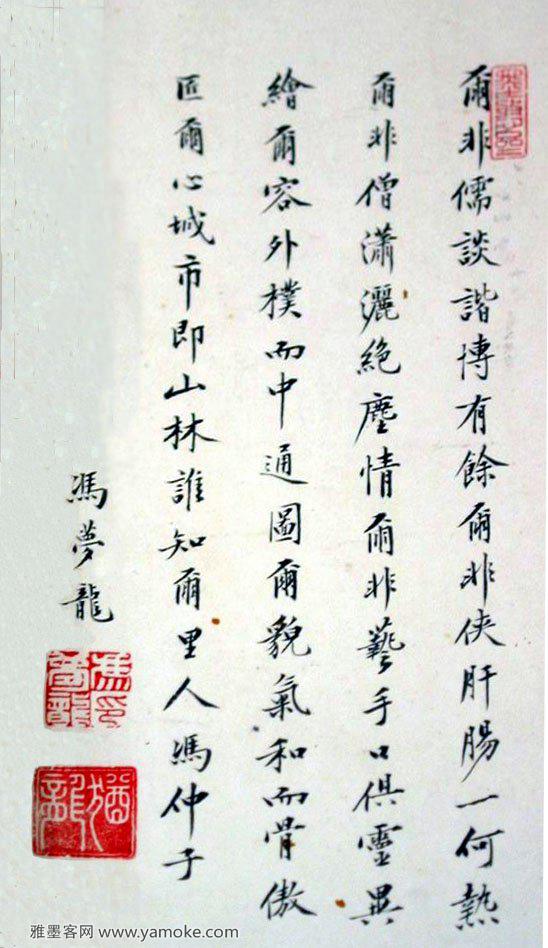 爾非儒談諧博有餘爾非俠肝腸一何熱
爾非僧瀟灑絕塵情爾非藝手口俱靈異
繪爾容外樸而中通圖爾貌氣和而骨傲
匠爾心城市即山林誰知爾里人馮仲子
馮夢龍
馮夢龍印
猶龍
雅墨客网 www.yamoke.com